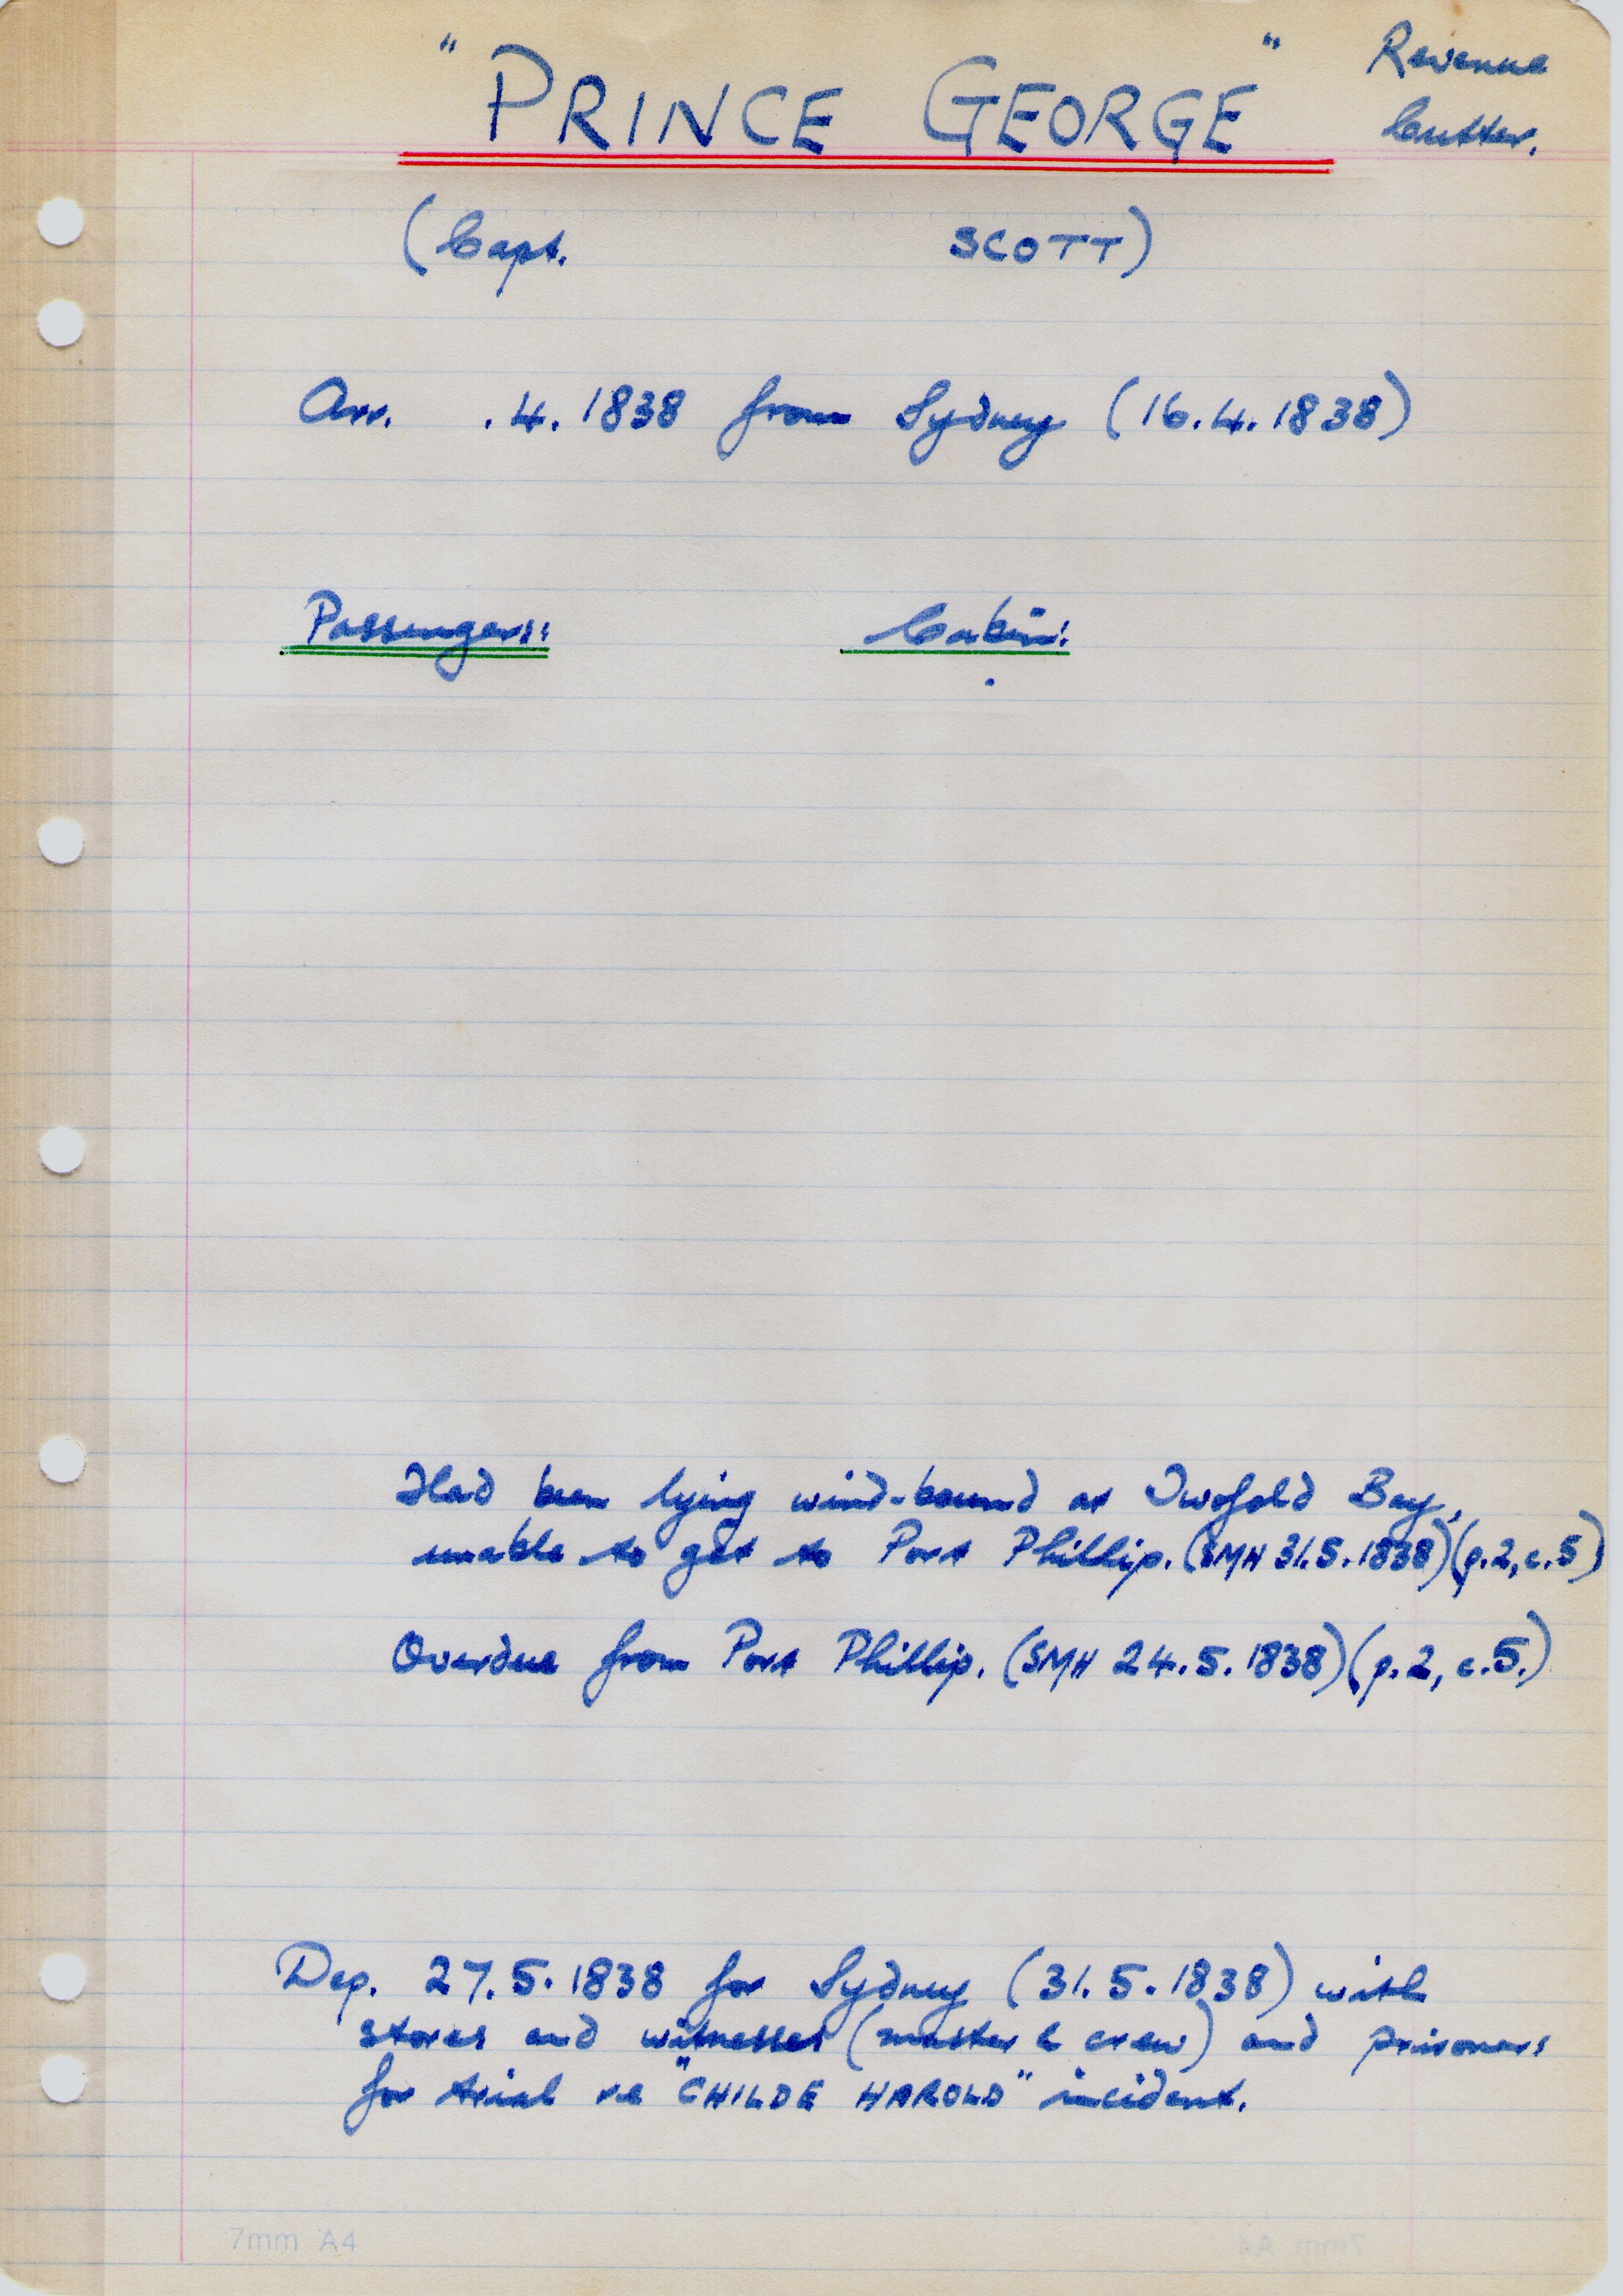 "PRINCE GEORGE" Revenue
Cutter.
(Capt. SCOTT)
Arr. .4.1838 from Sydney (16.4.1838)
Passengers: Cabin:
Had been lying wind-bound at Twofold Bay,
unable to get to Port Phillip. (SMH 31.5.1838)(p.2, c.5)
Overdue from Port Phillip. (SMH 24.5.1838)(p.2, c.5.)
Dep. 27.5.1838 for Sydney (31.5.1838) with
stores and witnesses (master & crew) and prisoners
for trial re "CHILDE HAROLD" incident.
7mm A4